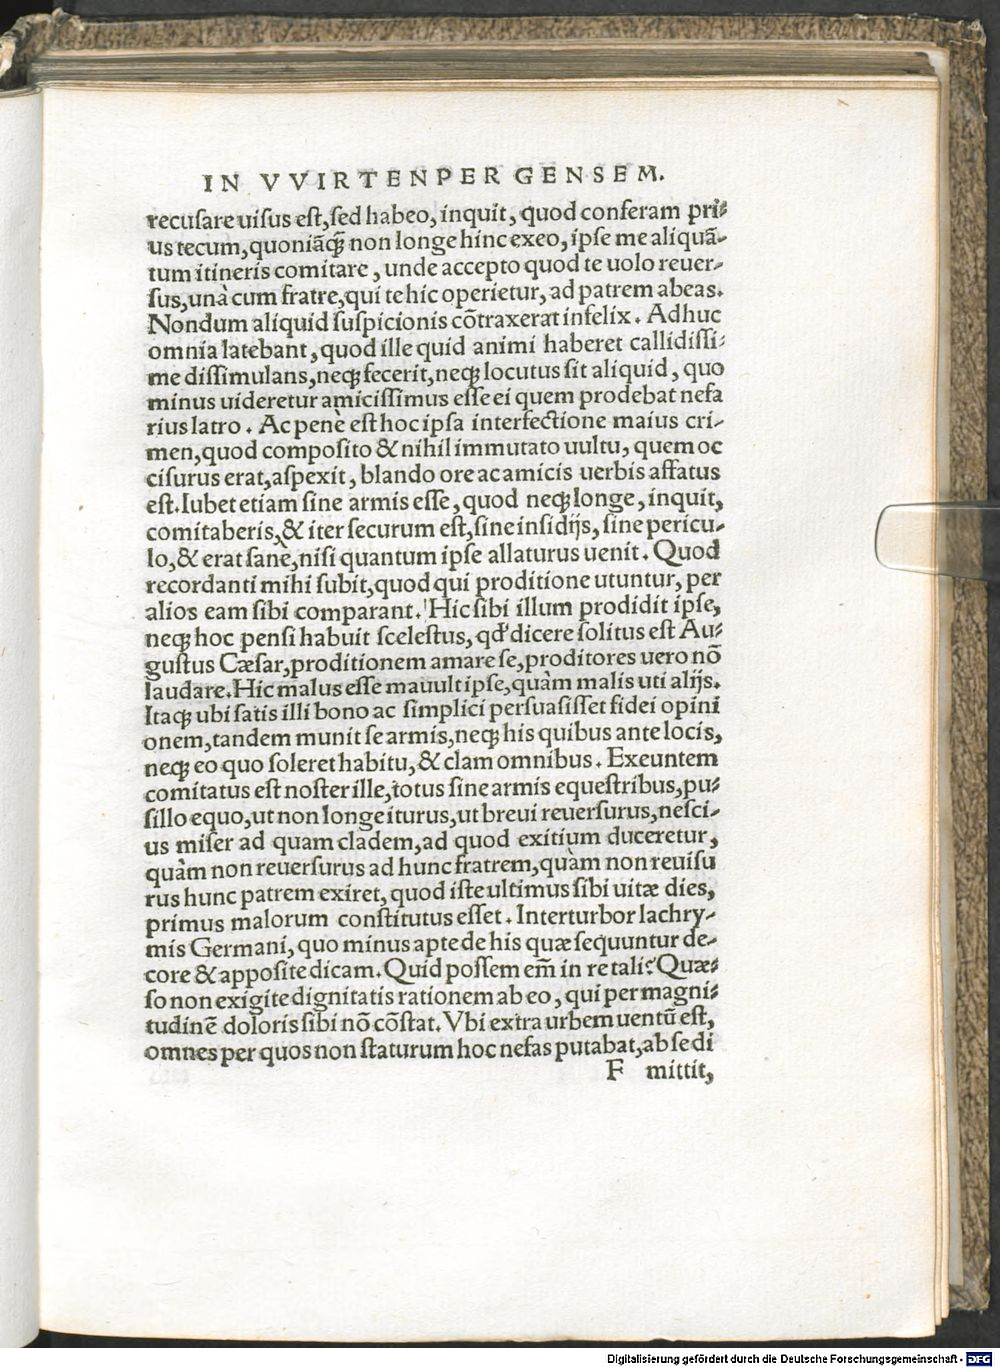 IN VVIRTENPERGENSEM.
recusare uisus est, sed habeo, inquit, quod conferam pri⸗
us tecum, quoniãq̃ȝ non longe hinc exeo, ipse me aliquã⸗
tum itineris comitare, unde accepto quod te uolo reuer⸗
sus, unà cum fratre, qui te hic operietur, ad patrem abeas.
Nondum aliquid suspicionis cõtraxerat infelix. Adhuc
omnia latebant, quod ille quid animi haberet callidissi⸗
me dissimulans, neqȝ fecerit, neqȝ locutus sit aliquid, quo
minus uideretur amicissimus esse ei quem prodebat nefa
rius latro. Ac penè est hoc ipsa interfectione maius cri⸗
men, quod composito & nihil immutato uultu, quem oc
cisurus erat, aspexit, blando ore ac amicis uerbis affatus
est. Iubet etiam sine armis esse, quod neqȝ longe, inquit,
comitaberis, & iter securum est, sine insidijs, sine pericu⸗
lo, & erat sane, nisi quantum ipse allaturus uenit. Quod
recordanti mihi subit, quod qui proditione utuntur, per
alios eam sibi comparant. Hic sibi illum prodidit ipse,
neqȝ hoc pensi habuit scelestus, qđ dicere solitus est Au⸗
gustus Cæsar, proditionem amare se, proditores uero nõ
laudare. Hic malus esse mauult ipse, quàm malis uti alijs.
Itaqȝ ubi satis illi bono ac simplici persuasisset fidei opini
onem, tandem munit se armis, neqȝ his quibus ante locis,
neqȝ eo quo soleret habitu, & clam omnibus. Exeuntem
comitatus est noster ille, totus sine armis equestribus, pu⸗
sillo equo, ut non longe iturus, ut breui reuersurus, nesci⸗
us miser ad quam cladem, ad quod exitium duceretur,
quàm non reuersurus ad hunc fratrem, quàm non reuisu
rus hunc patrem exiret, quod iste ultimus sibi uitæ dies,
primus malorum constitutus esset. Interturbor lachry⸗
mis Germani, quo minus apte de his quæ sequuntur de⸗
core & apposite dicam. Quid possem em̃ in re tali? Quæ⸗
so non exigite dignitatis rationem ab eo, qui per magni⸗
tudinẽ doloris sibi nõ cõstat. Vbi extra urbem uentũ est,
omnes per quos non staturum hoc nefas putabat, ab se di
F mittit,
Digitalisierung gefördert durch die Deutsche Forschungsgemeinschaft - DFG